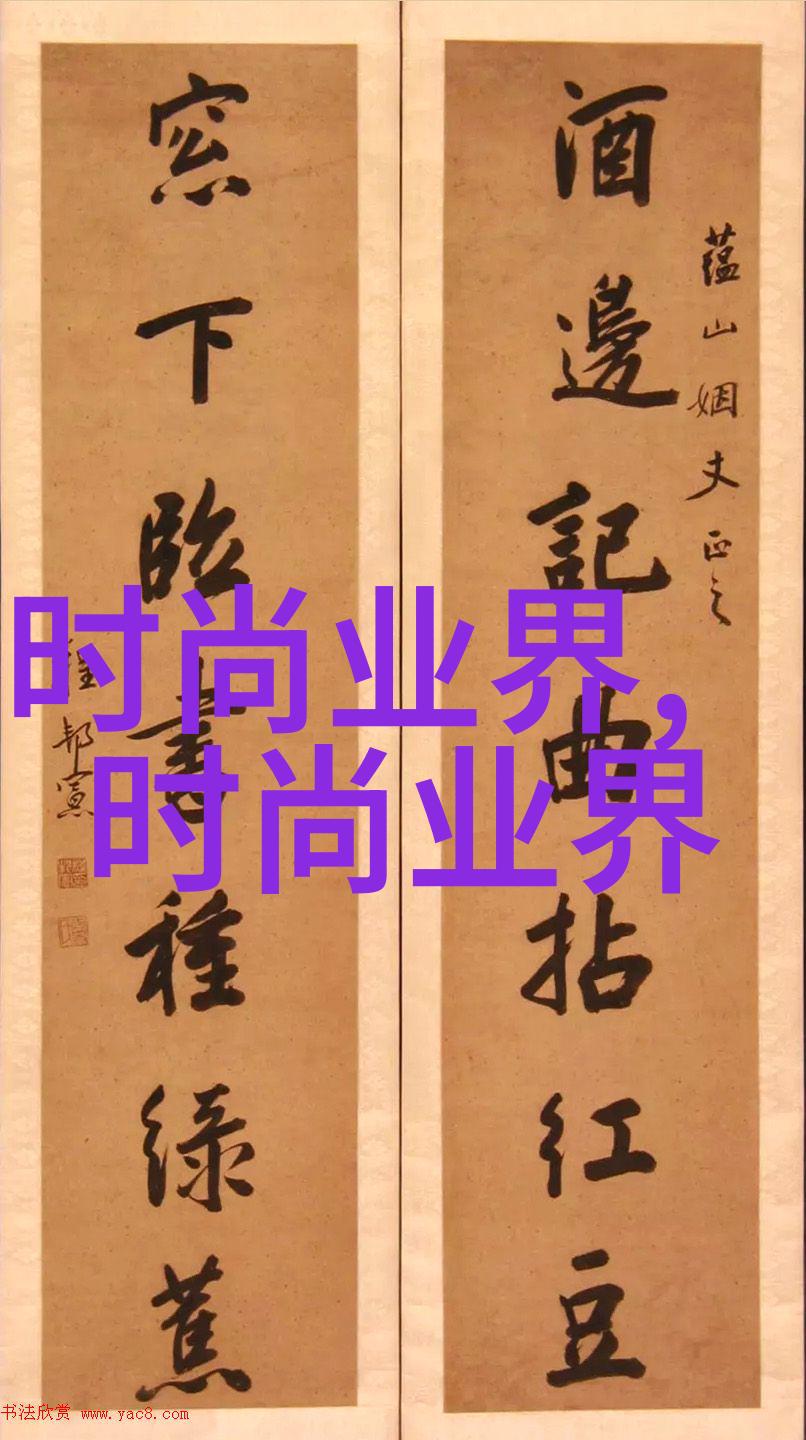 蕴山姻丈正之
酒邊記曲拈紅豆
窓下臨書種綠蕉
邦憲
时尚业界,
时尚业界
书法欣赏 www.yac8.com